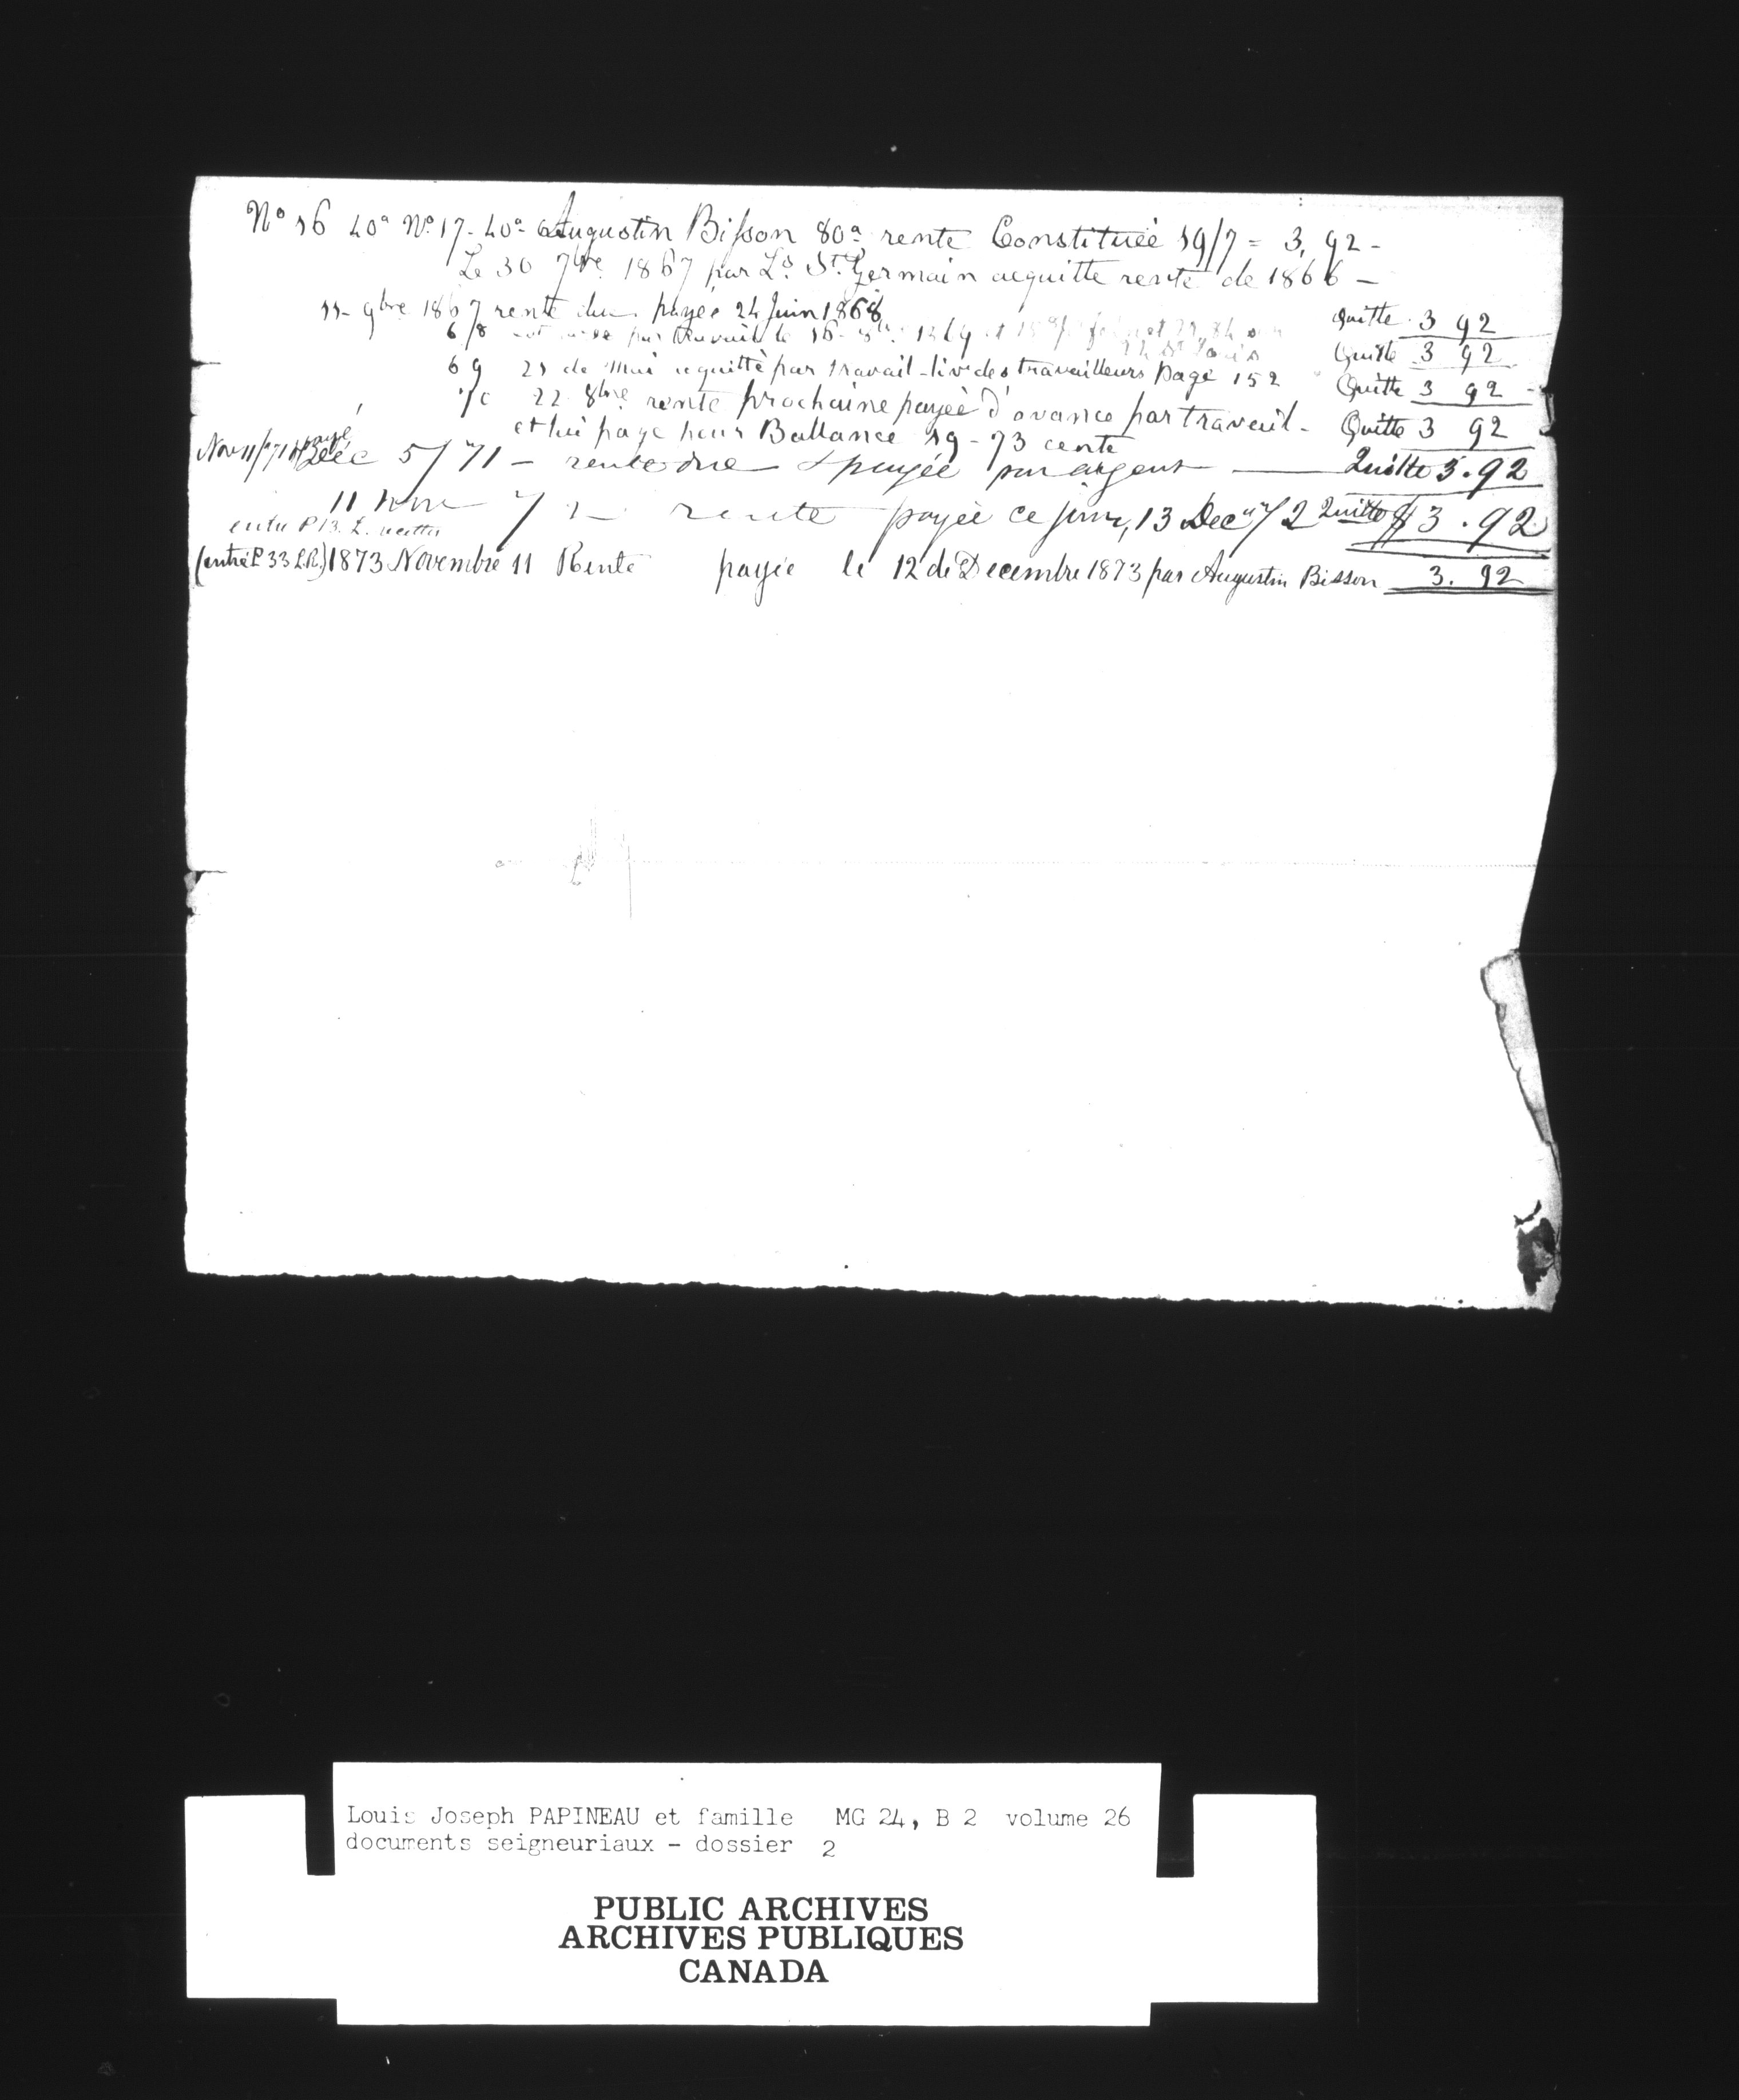 No 16 40a No 17 - 40a Augustin Bisson 80a rente Constituée 19/7 = 3,92 -
Le 30 7bre 1867 par Ls St Germain acquitte rente de 1866 -
11 - 9bre 1867 rente due payée 24 Juin 1868 Quitte 3 92
68 par travail le 16 1869 et Quitte 3 92
69 21 de Mai acquitté par travail - liv des travailleurs Page 152 Quitte 3 92
70 22 8bre rente prochaine payée d'avance par travail - Quitte 3 92
et lui paye pour Ballance 19 - 73 cents
Nov 11/71 payé Dec 5/71 - rente due & payée par argent Quitte 3.92
11 Nov 72 rente payée ce jour, 13 Decr 72 Quitte $3.92
entré P 13. L.
(entré P 33 L.R.) 1873 Novembre 11 Rente payée le 12 de Decembre 1873 par Augustin Bisson 3.92
Louis Joseph PAPINEAU et famille MG 24, B 2 volume 26
documents seigneuriaux - dossier 2
PUBLIC ARCHIVES
ARCHIVES PUBLIQUES
CANADA